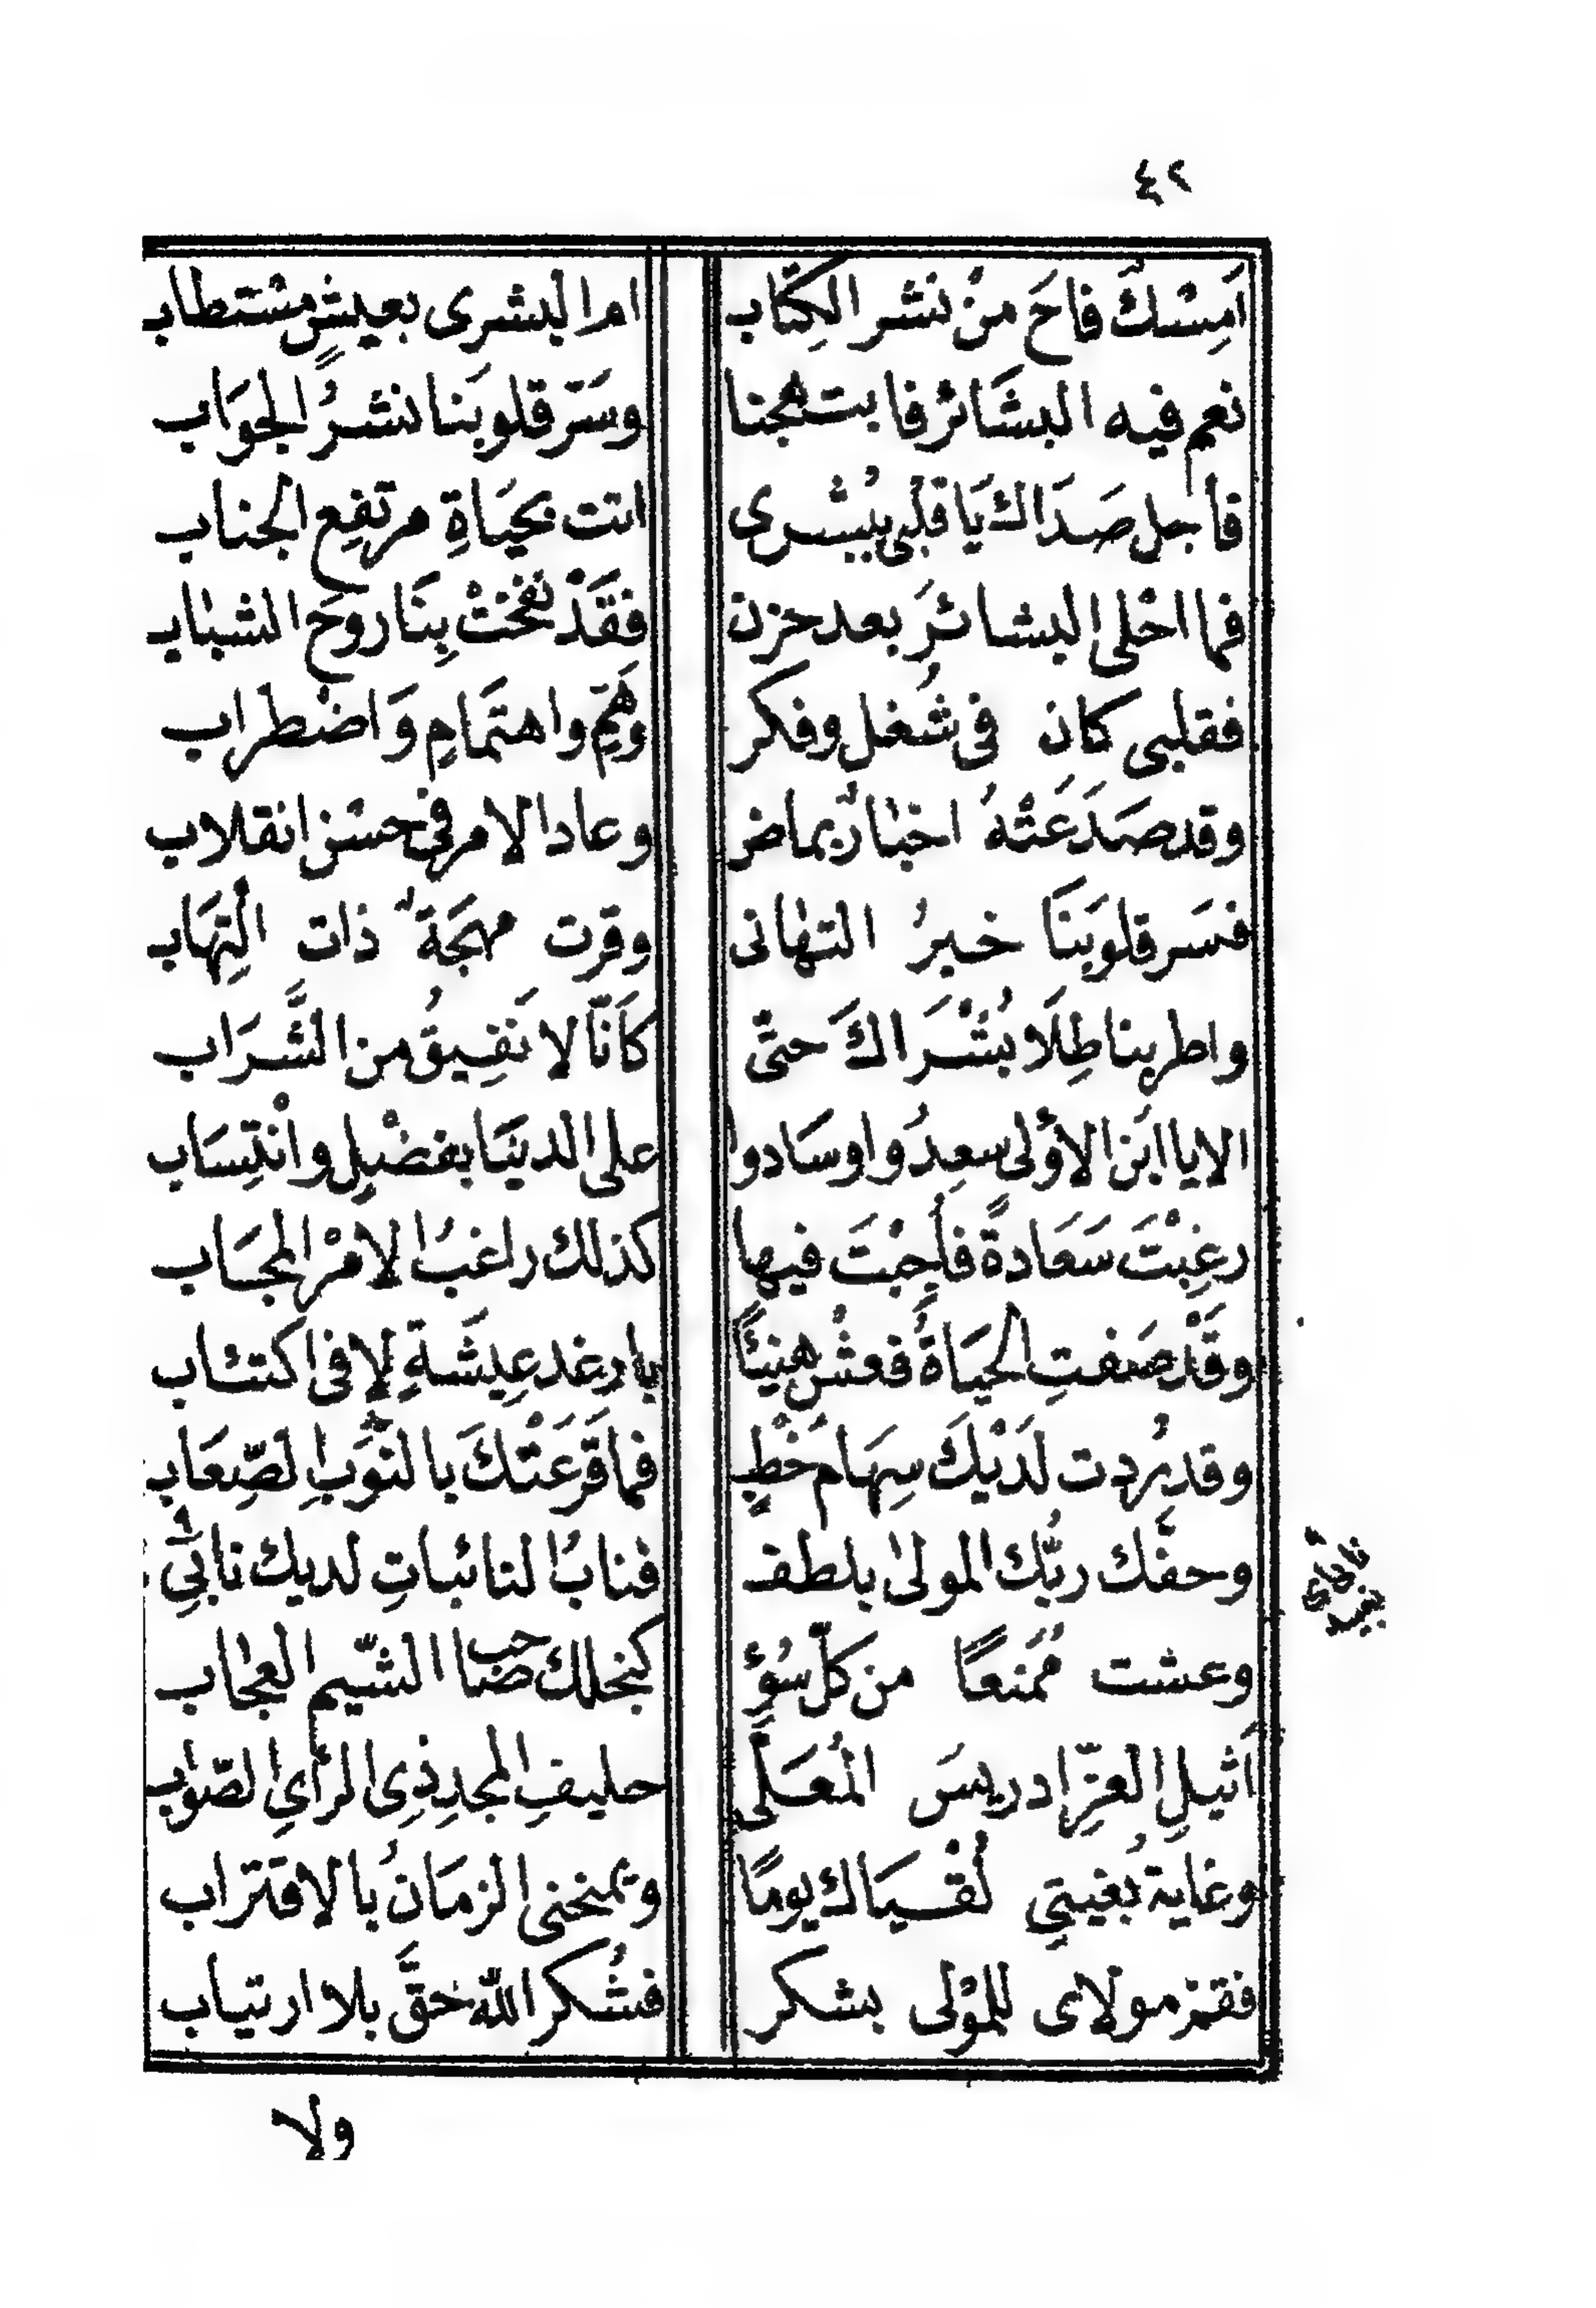 ٤٢
اَمِسْكٌ فاحَ منْ نشر الكِتَاب ام البشرى بعيشٍ مسْتطاب
نعم فيه البشَائر فابتهجنا وسَرّ قلوبَنا نشرُ الجوَاب
فاجل صَدَاك يَا قلبى ببُشْرى اتت بحيَاةِ مرتفِع الجناب
فما احْلى البشائرَ بعد حزن فقَدْ نفخَتْ بِنَا روحَ الشباب
فقلبى كان فى شُغل وفكر وهَمٍّ واهتمَامٍ وَاضْطراب
وقد صَدَعَتْهُ اخبارٌ بماض وعاد الامر فى حسْن انقلاب
فسَر قلوبَنَا خبرُ التهانى وقرت مهجَة ذات الْتِهَاب
واطربنا طِلَا بُشْرَاكَ حتّى كاَنّا لا نَفِيقُ من الشَّرَاب
الا يا ابْن الأولى سعِدُوا وسَادوا على الدنيَا بفضْلٍ وانْتِسَاب
رغِبْتَ سَعَادةً فأجِبْتَ فيها كذلك راغبُ الامْر المجَاب
وقَدْ صَفتِ الحيَاةُ فعشْ هنيئًا بارغد عِيشَةٍ لا فى اكتئاب
وقد رُدت لَدَيْكَ سِهَام خَطْبٍ فما قَرعَتْكَ بالنُوَبِ الصِّعَاب
وحفّك ربُّك المولى بلطف فنابُ النائباتِ لديك نابي
وعشت مُمَنعًا من كلّ سُوءٍ كنجلك صاحب الشّيم العجاب
اَثيلِ العزّ ادريسَ المُعَلَّى حليفِ المجدِ ذى الرأي الصّواب
وغاية بُغيتي لُقْيَاك يومًا ويمنحنى الزمَانُ بالاقتراب
فقمْ مولاى للمَوْلى بشكر فشُكر الله حقَّ بلا ارتياب
ولا